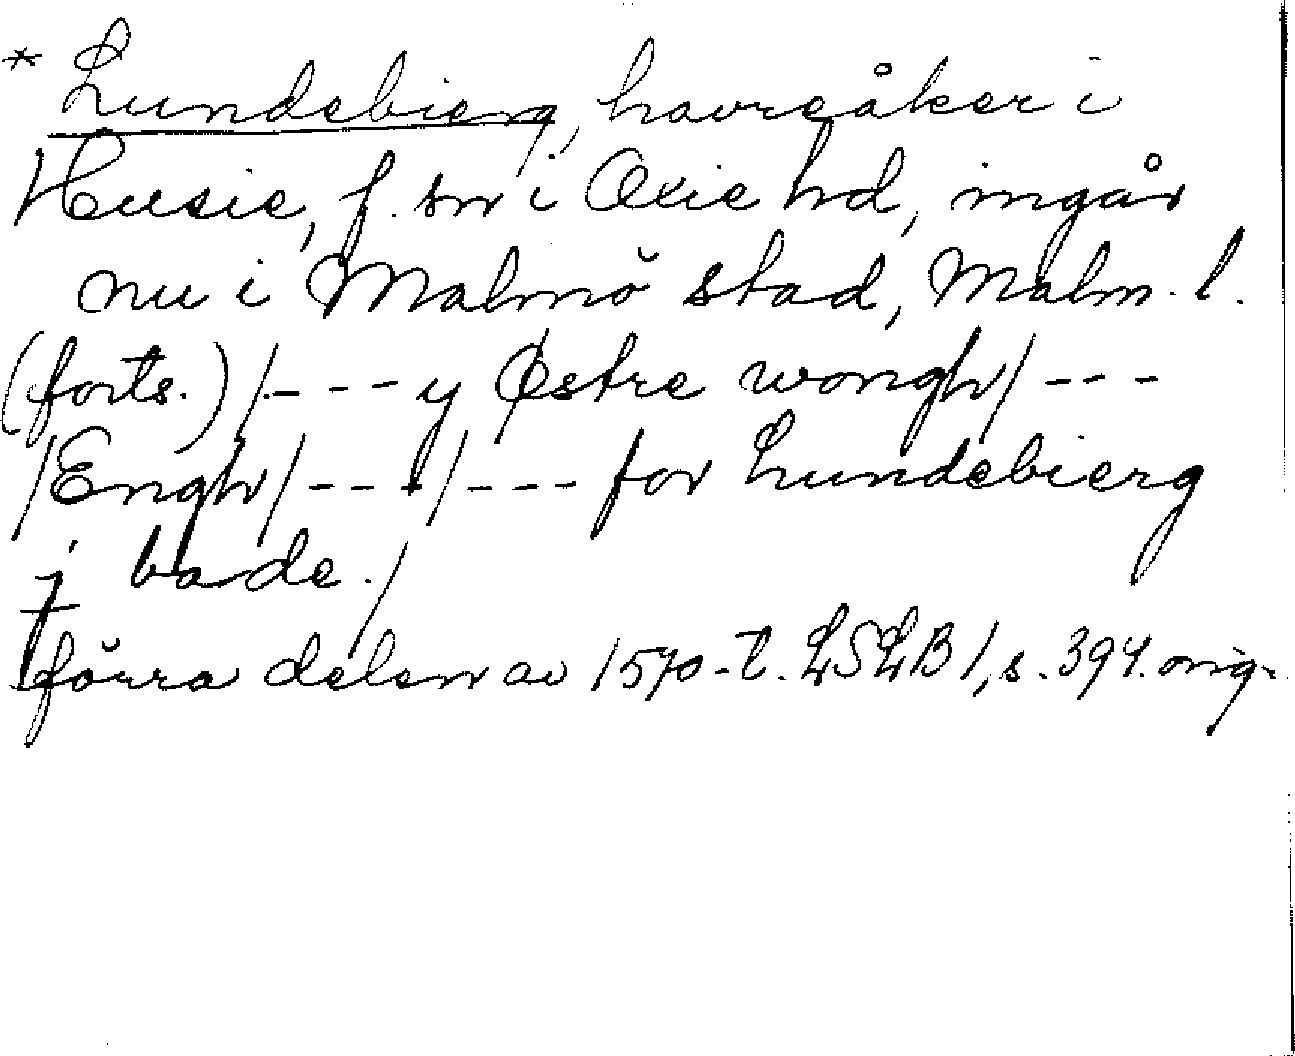 * Lundebierg, havreåker i
Husie, f. sn i Oxie hd, ingår
nu i Malmö stad, Malm. l.
(forts.) /. - - - y Østre wongh/ - - -
/Engh/ - - - /- - - for Lundebierg
j bade./
förra delen av 1570-t. LSLB 1, s. 394. orig.